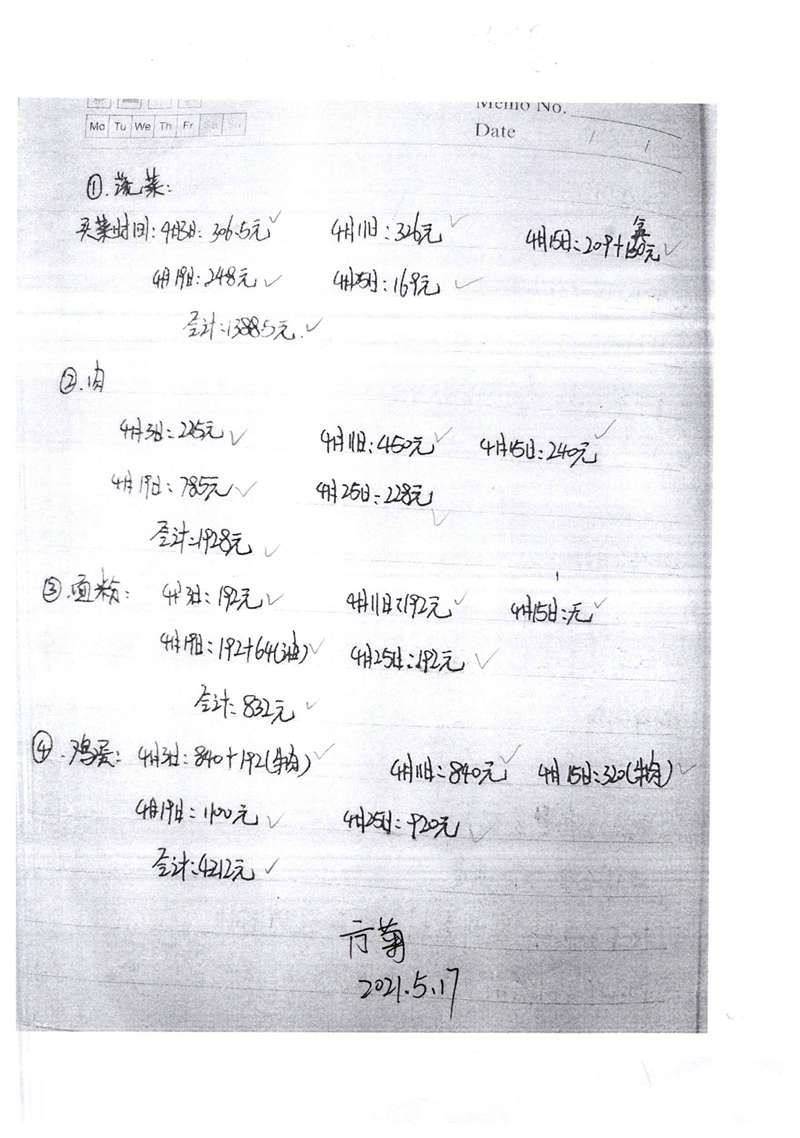 Memo No.
Mo Tu We Th Fr Sa Su
Date / /
①.蔬菜:
买菜时间:4月3日:306.5元 4月11日:326元 4月15日:209+130元
4月19日:248元 4月25日:169元
合计:1388.5元.
②.肉
4月3日:225元 4月11日:450元 4月15日:240元
4月19日:785元 4月25日:228元
合计:1928元
③.面粉: 4月3日:192元 4月11日:192元 4月15日:无
4月19日:192+64(油) 4月25日:192元
合计:832元
④.鸡蛋: 4月3日:840+192(牛肉) 4月11日:840元 4月15日:320(牛肉)
4月19日:1100元 4月25日:920元
合计:4212元
方菊
2021.5.17